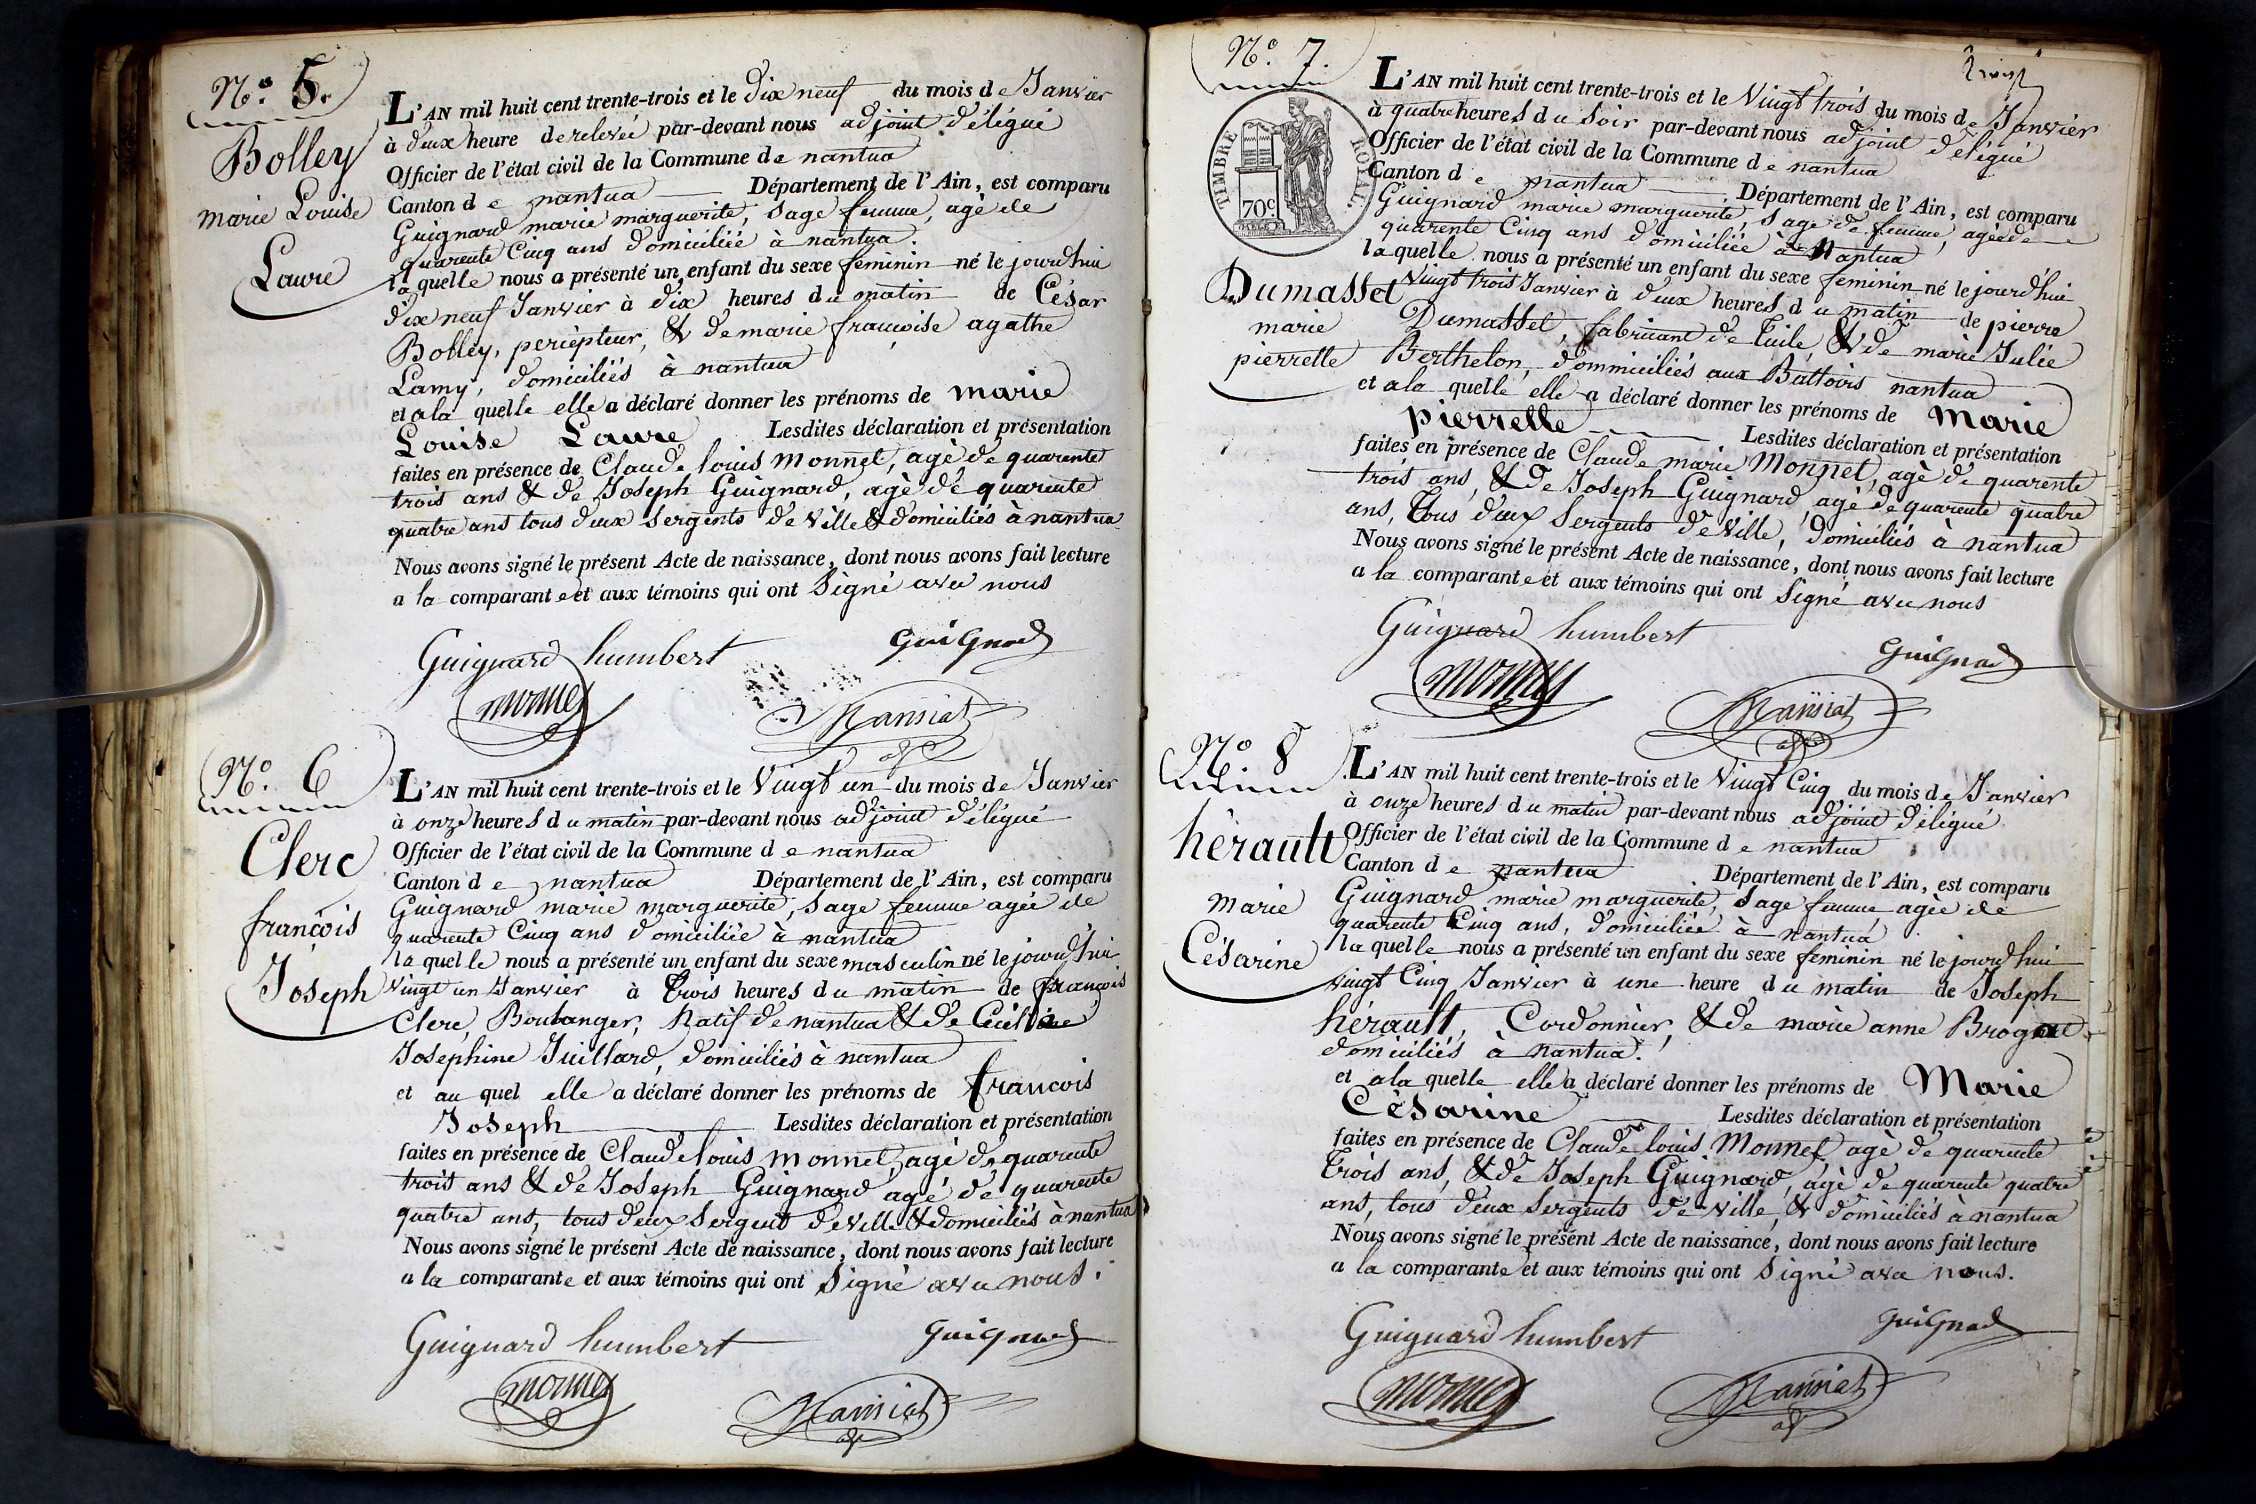 N.º 5.
Bolley
marie Louise
Laure
L'AN mil huit cent trente-trois et le dix neuf du mois de Janvier
à deux heure de relevée par-devant nous adjoint délégué
Officier de l'état civil de la Commune de nantua
Canton de nantua Département de l'Ain, est comparu
Guignard marie marguerite, sage femme, agé de
quarente Cinq ans domiciliée à nantua.
la quelle nous a présenté un enfant du sexe feminin né le jourd'hui
dix neuf Janvier à dix heures du matin de César
Bolley, percepteur, & de marie francoise agathe
Lamy, domiciliés à nantua
et a la quelle elle a déclaré donner les prénoms de marie
Louise Laure Lesdites déclaration et présentation
faites en présence de Claude louis Monnet, agé de quarente
trois ans & de Joseph Guignard, agé de quarente
quatre ans tous deux sergents de ville & domiciliés à nantua
Nous avons signé le présent Acte de naissance, dont nous avons fait lecture
a la comparante et aux témoins qui ont signé avec nous
Guignard humbert Guignard
monnet Mansiat
N.º 6
Clerc
françois
Joseph
L'AN mil huit cent trente-trois et le Vingt un du mois de Janvier
à onze heures du matin par-devant nous adjoint délégué
Officier de l'état civil de la Commune de nantua
Canton de nantua Département de l'Ain, est comparu
Guignard marie marguerite, sage femme agée de
quarente Cinq ans domiciliée à nantua
la quelle nous a présenté un enfant du sexe masculin né le jourd'hui
vingt un Janvier à trois heures du matin de françois
Clerc, Boulanger, Natif de nantua & de
Josephine Juillard, domiciliés à nantua
et au quel elle a déclaré donner les prénoms de francois
Joseph Lesdites déclaration et présentation
faites en présence de Claude louis monnet, agé de quarente
trois ans & de Joseph Guignard agé de quarente
quatre ans, tous deux sergent de ville & domiciliés à nantua
Nous avons signé le présent Acte de naissance, dont nous avons fait lecture
a la comparante et aux témoins qui ont signé avec nous.
Guignard humbert Guignard
monnet Mansiat
N.º 7.
TIMBRE ROYAL.
70c.
Dumasset
marie
pierrette
L'AN mil huit cent trente-trois et le Vingt trois du mois de Janvier
à quatre heures du soir par-devant nous adjoint délégué
Officier de l'état civil de la Commune de nantua
Canton de nantua Département de l'Ain, est comparu
Guignard marie marguerite, sage de femme, agée de
quarente Cinq ans domiciliée à Nantua
la quelle nous a présenté un enfant du sexe feminin né le jourd'hui
Vingt trois Janvier à deux heures du matin de pierre
Dumasset, fabricant de tuile & de marie Julie
Berthelon, dommiciliés aux Battoirs nantua
et a la quelle elle a déclaré donner les prénoms de Marie
pierrette Lesdites déclaration et présentation
faites en présence de Claude marie Monnet, agé de quarente
trois ans, & de Joseph Guignard agé de quarente quatre
ans, Tous deux sergents de ville, domiciliés à nantua
Nous avons signé le présent Acte de naissance, dont nous avons fait lecture
a la comparante et aux témoins qui ont signé avec nous
Guignard humbert Guignard
monnet Mansiat
N.º 8
hérault
Marie
Césarine
L'AN mil huit cent trente-trois et le Vingt Cinq du mois de Janvier
à onze heures du matin par-devant nous adjoint délégué
Officier de l'état civil de la Commune de nantua
Canton de nantua Département de l'Ain, est comparu
Guignard marie marguerite, sage femme agée de
quarente Cinq ans, domiciliée à nantua
la quelle nous a présenté un enfant du sexe feminin né le jourd'hui
vingt Cinq Janvier à une heure du matin de Joseph
hérault, Cordonnier, & de marie anne
domiciliés à nantua.
et a la quelle elle a déclaré donner les prénoms de Marie
Césarine Lesdites déclaration et présentation
faites en présence de Claude louis Monnet agé de quarente
trois ans, & de Joseph Guignard, agé de quarente quatre
ans, tous deux sergents de ville, & domiciliés à nantua
Nous avons signé le présent Acte de naissance, dont nous avons fait lecture
a la comparante et aux témoins qui ont signé avec nous.
Guignard humbert Guignard
monnet Mansiat